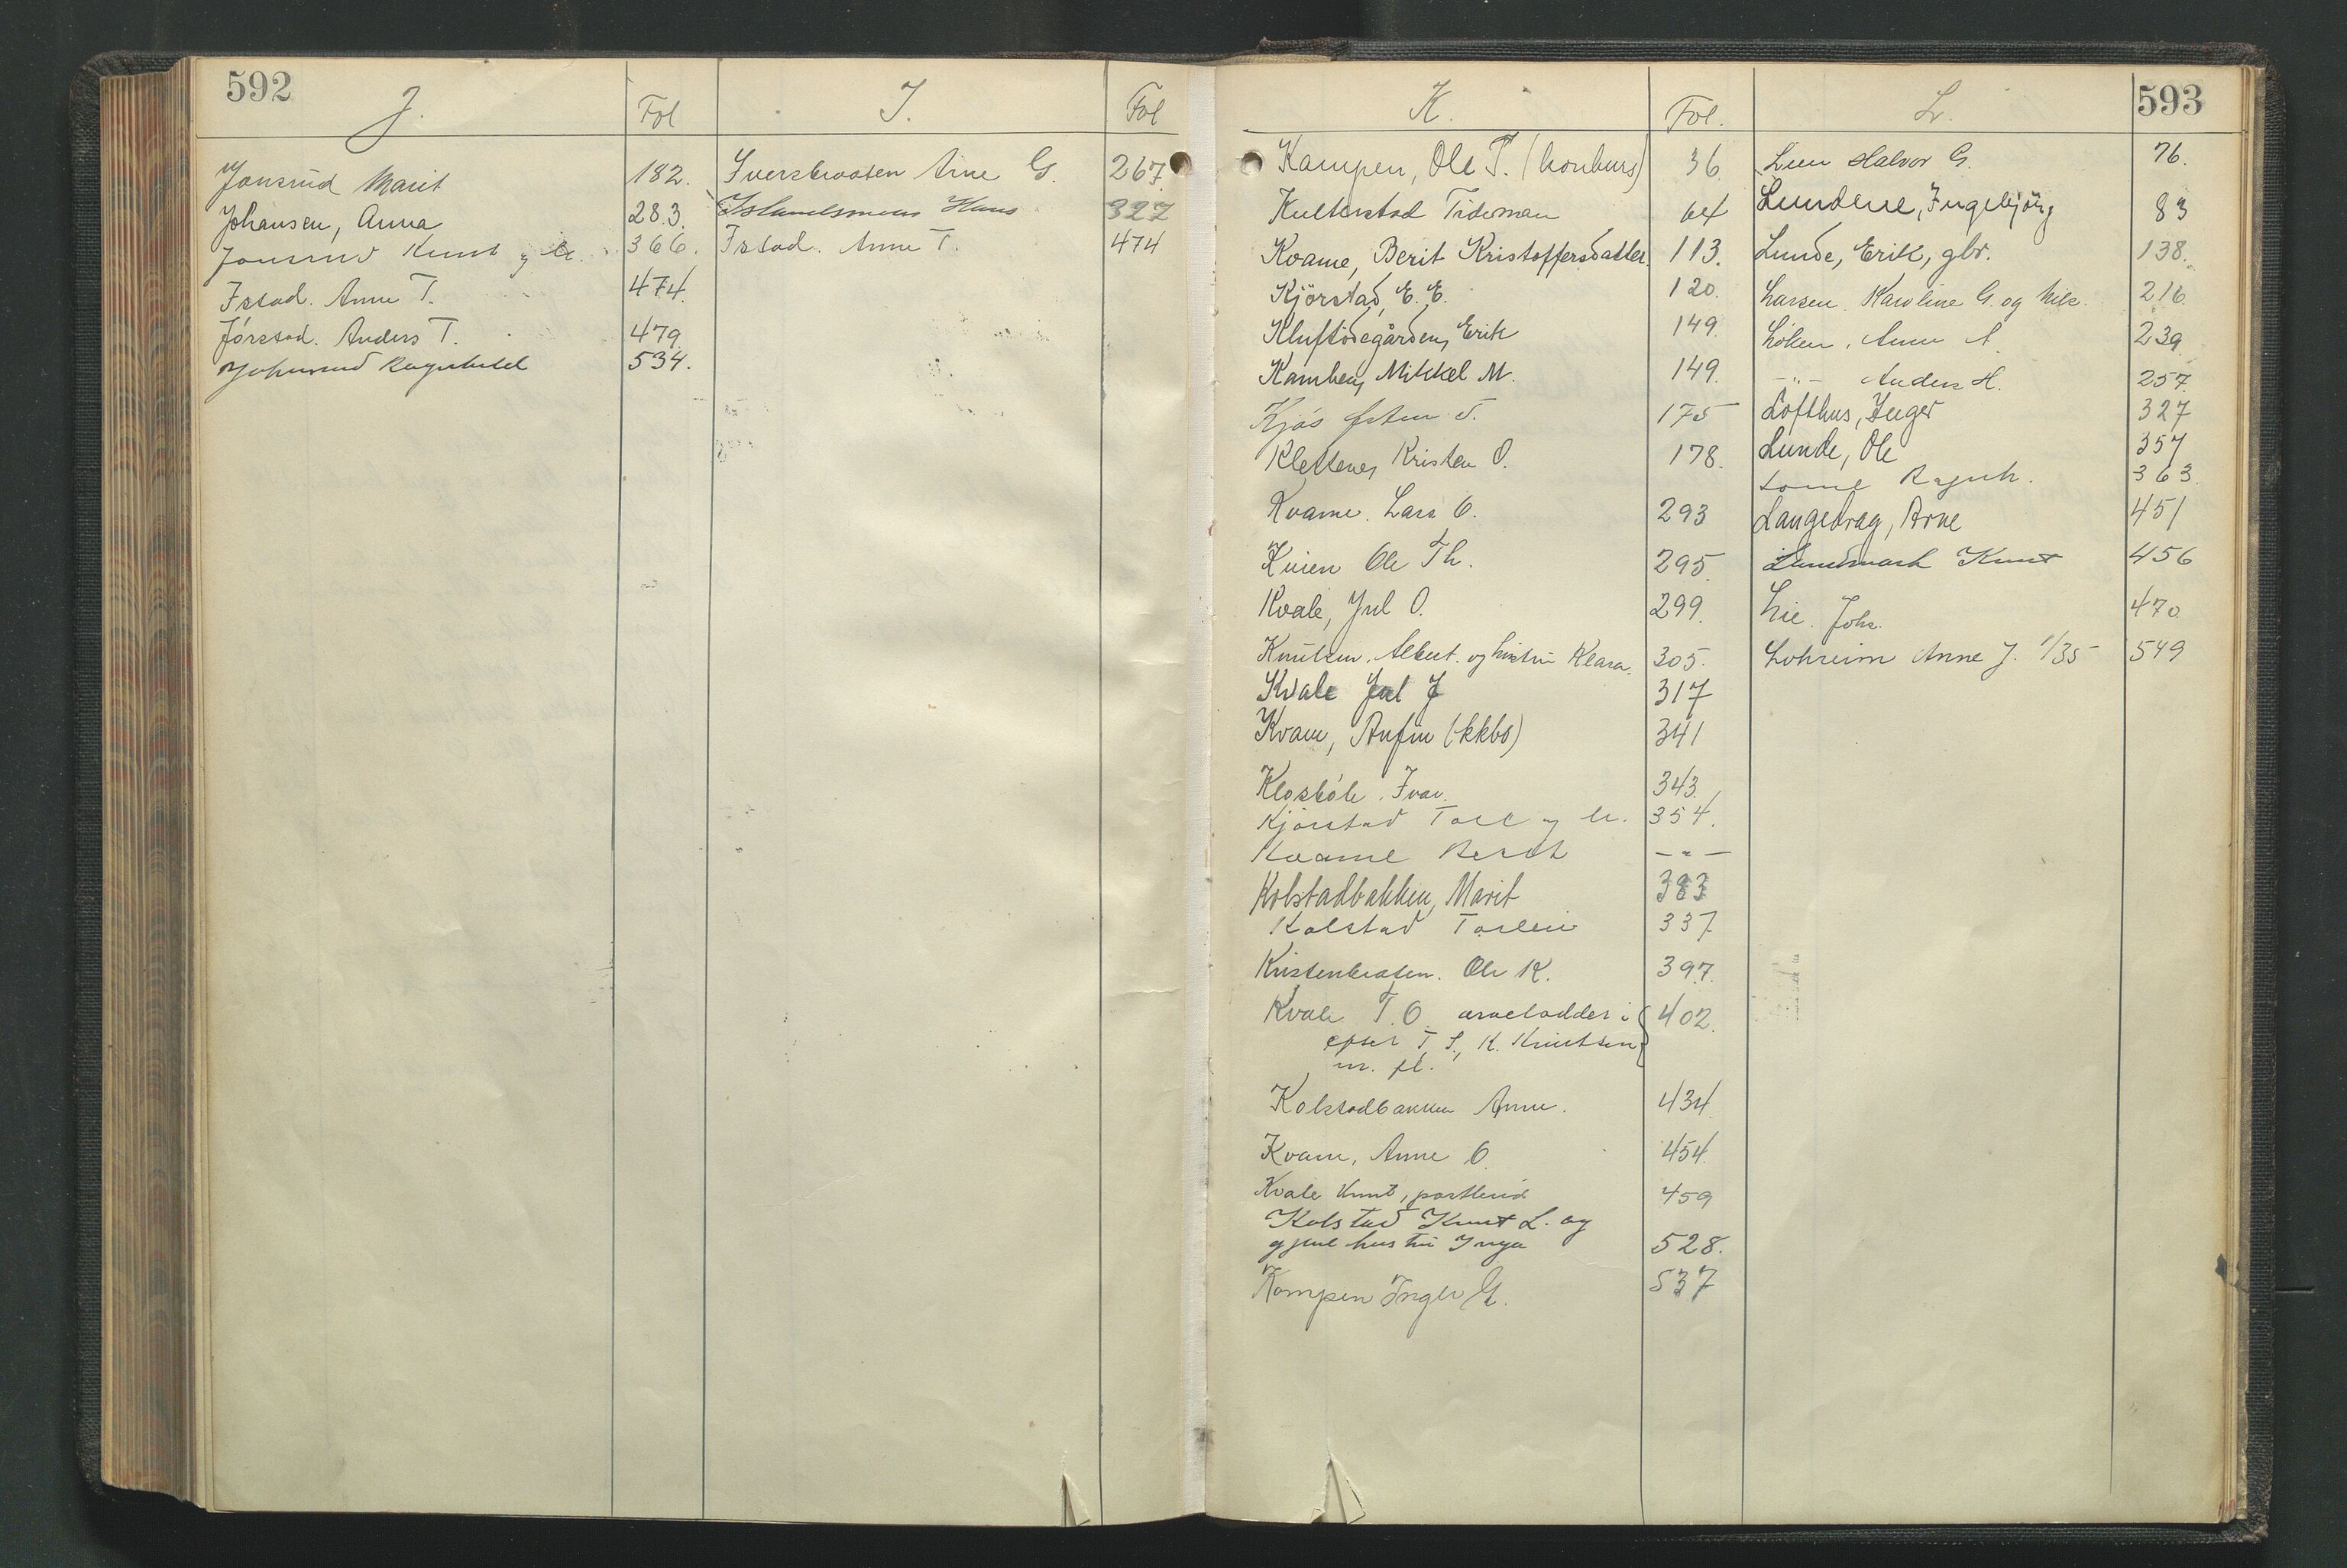 592
J. Fol
Jonsrud Marit 182.
Johansen, Anna 283.
Jonsrud Knut 366.
Istad. Anne T. 474.
Jørstad. Anders T. 479.
Ragnhild 534.
I. Fol
Iversbraaten Arne G. 267.
Islandsmoen Hans 327
Istad. Anne T. 474
593
K. Fol.
Kampen, Ole T. (konkurs) 36.
Tideman 64
Kvame, Berit Kristoffersdatter. 113.
Kjörstad, E. E. 120.
Kluftödegården, Erik 149.
Mikkel M. 149.
Kjøs T. 175
Kletten, Kristen O. 178.
Kvame. Lars O. 293
Ole Th. 295.
Kvale, Jul O. 299.
Knutsen. Albert. og hustru Klara. 305.
Kvale Jul J 317
Kvam, Anfin (kkbo) 341
Klosbøle. Ivar. 343.
Kjørstad Tore og 354.
Kvame Berit — " —
Kolstadbakken, Marit 383
Kolstad Torlein 337
Kristenbraten. Ole K. 397.
Kvale T. O. arvelodder i 402.
efter T. S., K. Knutsen
m. fl.
Kolstadbakken Anne. 434.
Kvam, Anne O. 454.
Kvale Knut, 459
Kolstad Knut L. og
hustru Inga 528.
Kampen Inger G. 537
L.
Lien Halvor G. 76.
Lundene, Ingebjörg 83
Lunde, Erik, gbr. 138.
Larsen Karoline G. og 216
Løken. Anne A. 239
— " — Anders H. 257.
Lofthus, Inger 327
Lunde, Ole 357
Ragnh. 363.
Langedrag, Arne 451
Lundmark Knut 456
Lie. Johs. 470
Lohreim Anne J. 1/35 549